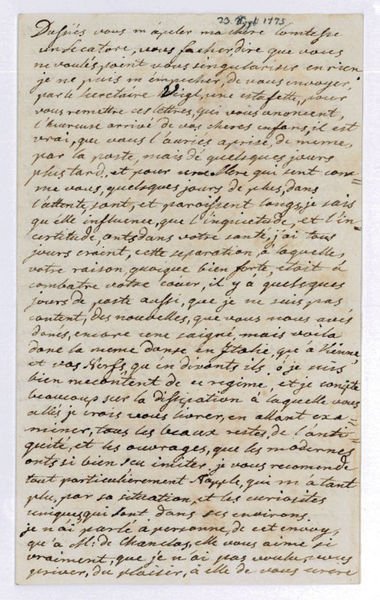 23. Sept. 1775.
Dussiés vous m'apeler ma chère Comtesse
indicatore, vous facher, dire que vous
ne voulés point vous singulariser en rien
je ne puis m'empecher, de vous envoyer,
par le secretaire une estafette, pour
vous remettre ces lettres, qui vous anoncent,
l'heureuse arrivé de vos cheres enfans, il est
vrai, que vous l'auriés aprise, de meme,
par la poste, mais de quelques jours
plus tard, et pour une Mere qui sent com=
me vous, quelques jours de plus, dans
l'attente, sont, et paroissent longs, je sais
qu'elle influence, que l'inquietude, et l'in=
certitude, onts, dans votre santé, j'ai tous
jours craint, cette separation, à laquelle,
votre raison, quoique bien forte, étoit à
combatre votre coeur, il y a quelques
jours de poste aussi, que je ne suis, pas
content, des nouvelles, que vous nous avés
donés, encore une saigné, mais voila
donc la meme danse en Italie, qu'à Vienne,
et vos Nerfs, qu'en dironts ils, o je suis
bien mecontent de ce regime, et je compte
beaucoup sur la dissipation à laquelle vous
allés je crois vous livrer, en allant exa=
miner, tous les beaux restes, de l'anti=
quité, et les ouvrages, que les modernes
onts si bien seu imiter, je vous recomende
tout particulierement Naple, qui m'a tant
plu, par sa situation, et les curiosites
uniques qui sont dans ses environs.
je n'ai parlé a personne, de cet envoy,
qu'a Me: de Chanclos, elle vous aime si
vraiment, que je n'ai pas voulu, vous
priver, du plaisir, à elle de vous ecrire